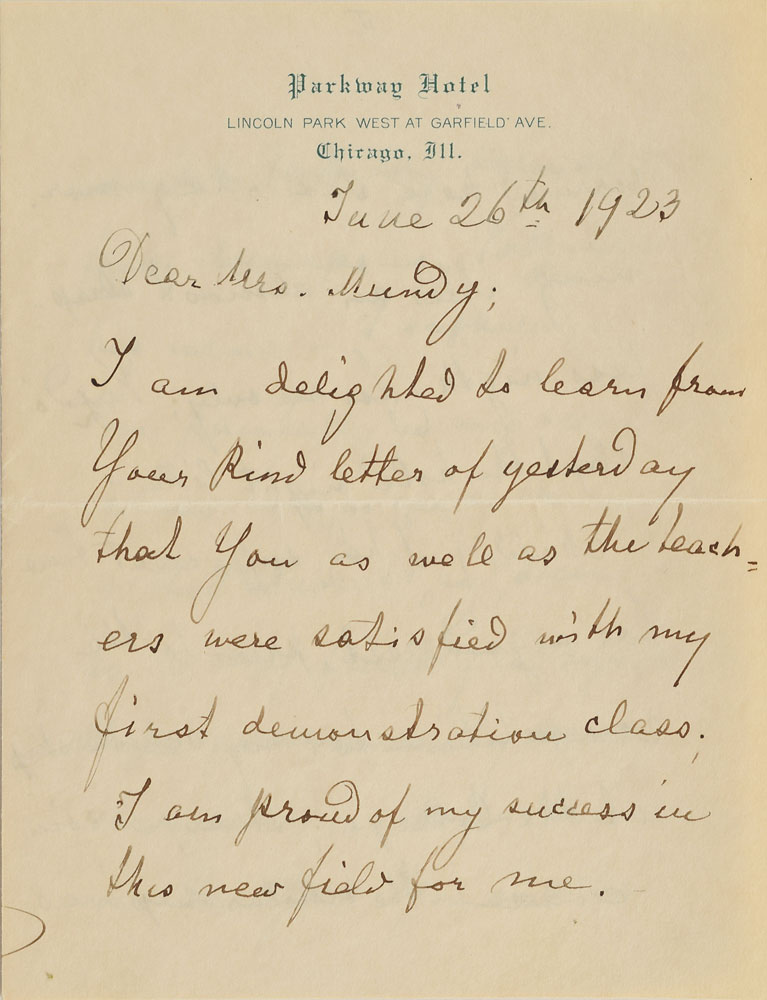 Parkway Hotel
LINCOLN PARK WEST AT GARFIELD AVE.
Chicago, Ill.
June 26th 1923
Dear Mrs. Mundy;
I am delighted to learn from
Your kind letter of yesterday
that You as well as the teach=
ers were satisfied with my
first demonstration class.
I am proud of my success in
this new field for me.